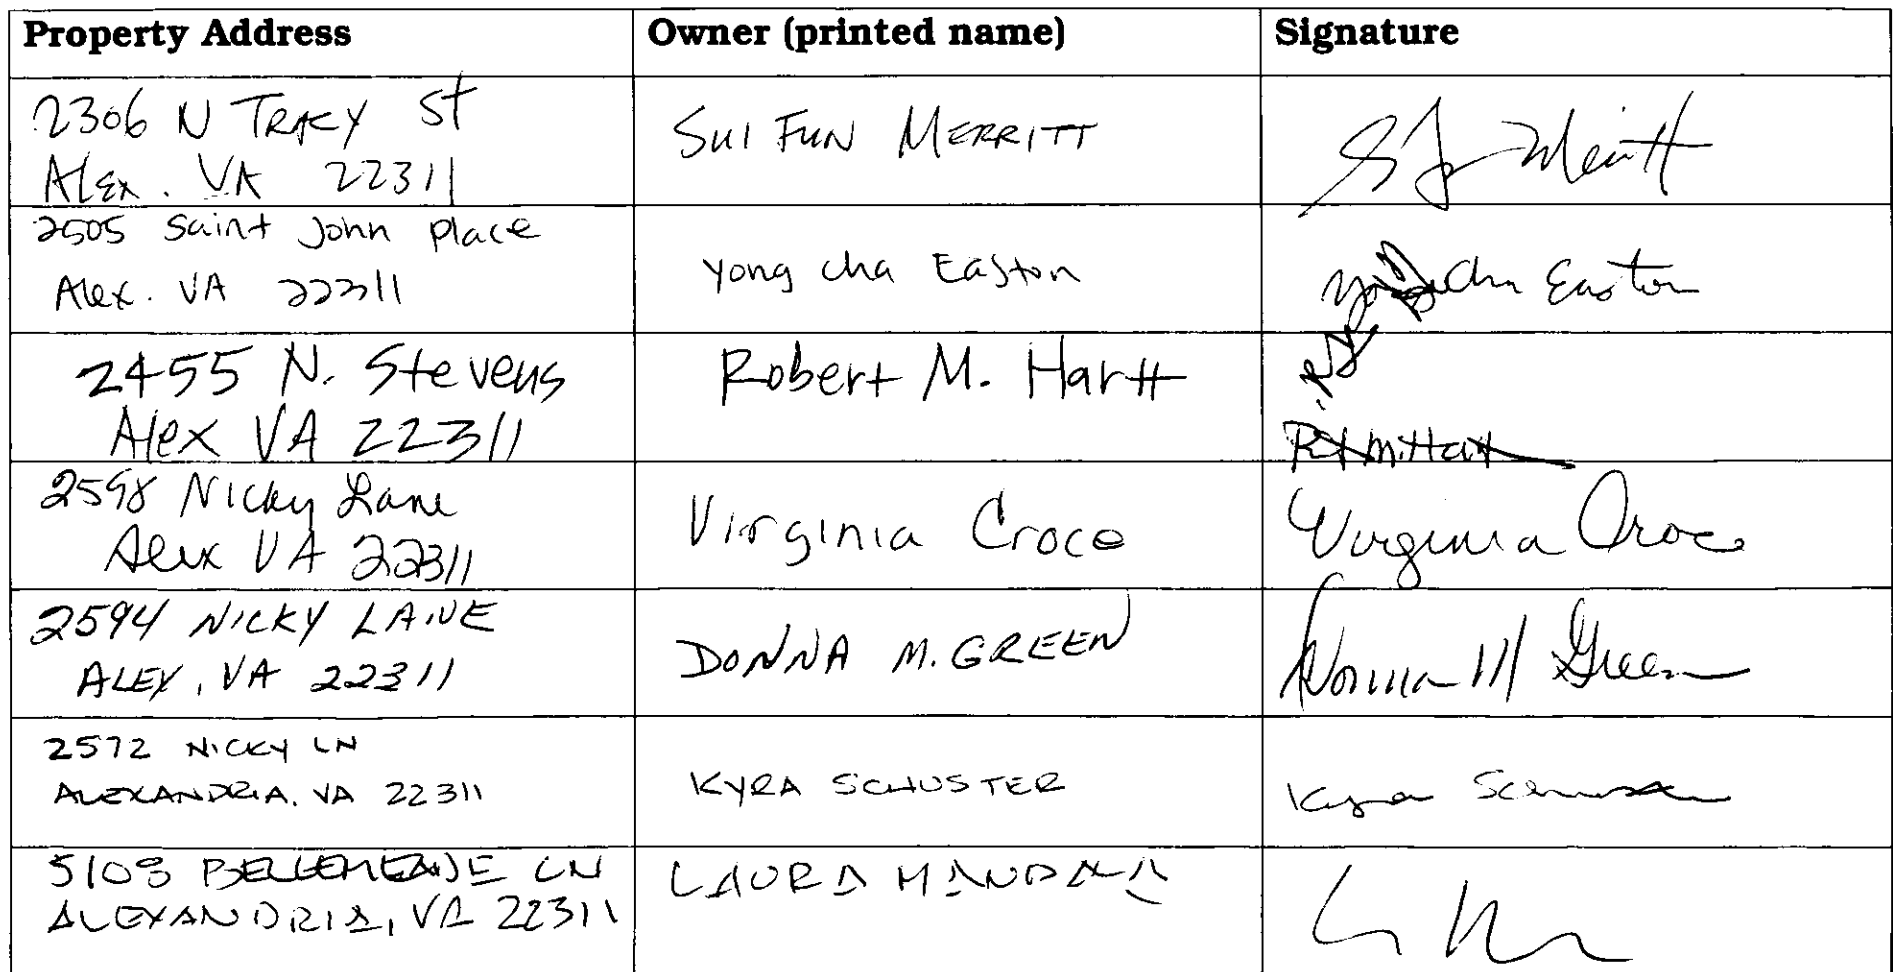 Property Address Owner (printed name) Signature
2306 N TRACY St
Alex. VA 22311
SUI FUN MERRITT
2505 Saint John place
Alex. VA 22311
Yong cha Easton
Cha Easton
2455 N. Stevens
Alex VA 22311
Robert M. Hartt
2598 Nicky Lane
Alex VA 22311
Virginia Croce
Virginia Croce
2594 NICKY LANE
ALEX, VA 22311
DONNA M. GREEN
M Green
2572 NICKY LN
ALEXANDRIA, VA 22311
KYRA SCHUSTER
Kyra
LN
ALEXANDRIA, VA 22311
LAURA